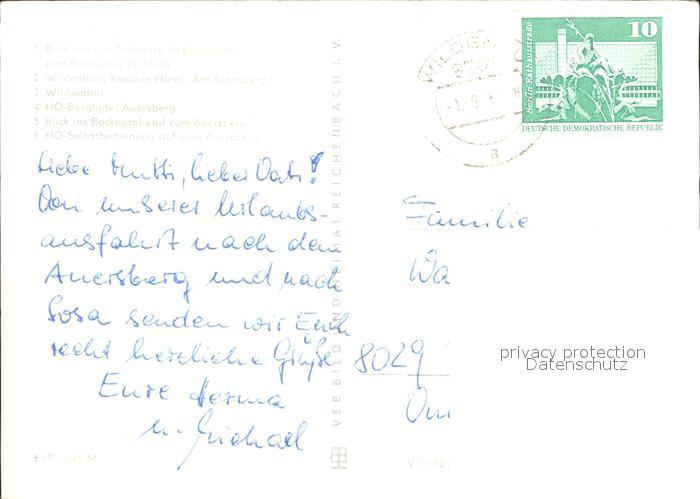 1 Blick von der Talsperre des
zum Auersberg (1018 m)
2 Wildenthal, Konsum-Hotel „Am Auersberg"
3 Wildenthal
4 HO-Berghotel Auersberg
5 Blick ins Bockautal und zum Auersberg
6 HO-Selbstbedienung auf dem Auersberg
Liebe Mutti, lieber Vati!
Von unserer Urlaubs-
ausfahrt nach dem
Auersberg und nach
Sosa senden wir Euch
recht herzliche Grüße
Eure Herma
u. Michael
EVP: 0,25 M
VEB BILD UND HEIMAT REICHENBACH I. V.
V 11 50
10
Berlin, Rathausstraße
DEUTSCHE DEMOKRATISCHE REPUBLIK
a
Familie
Wa
8029
privacy protection
Datenschutz